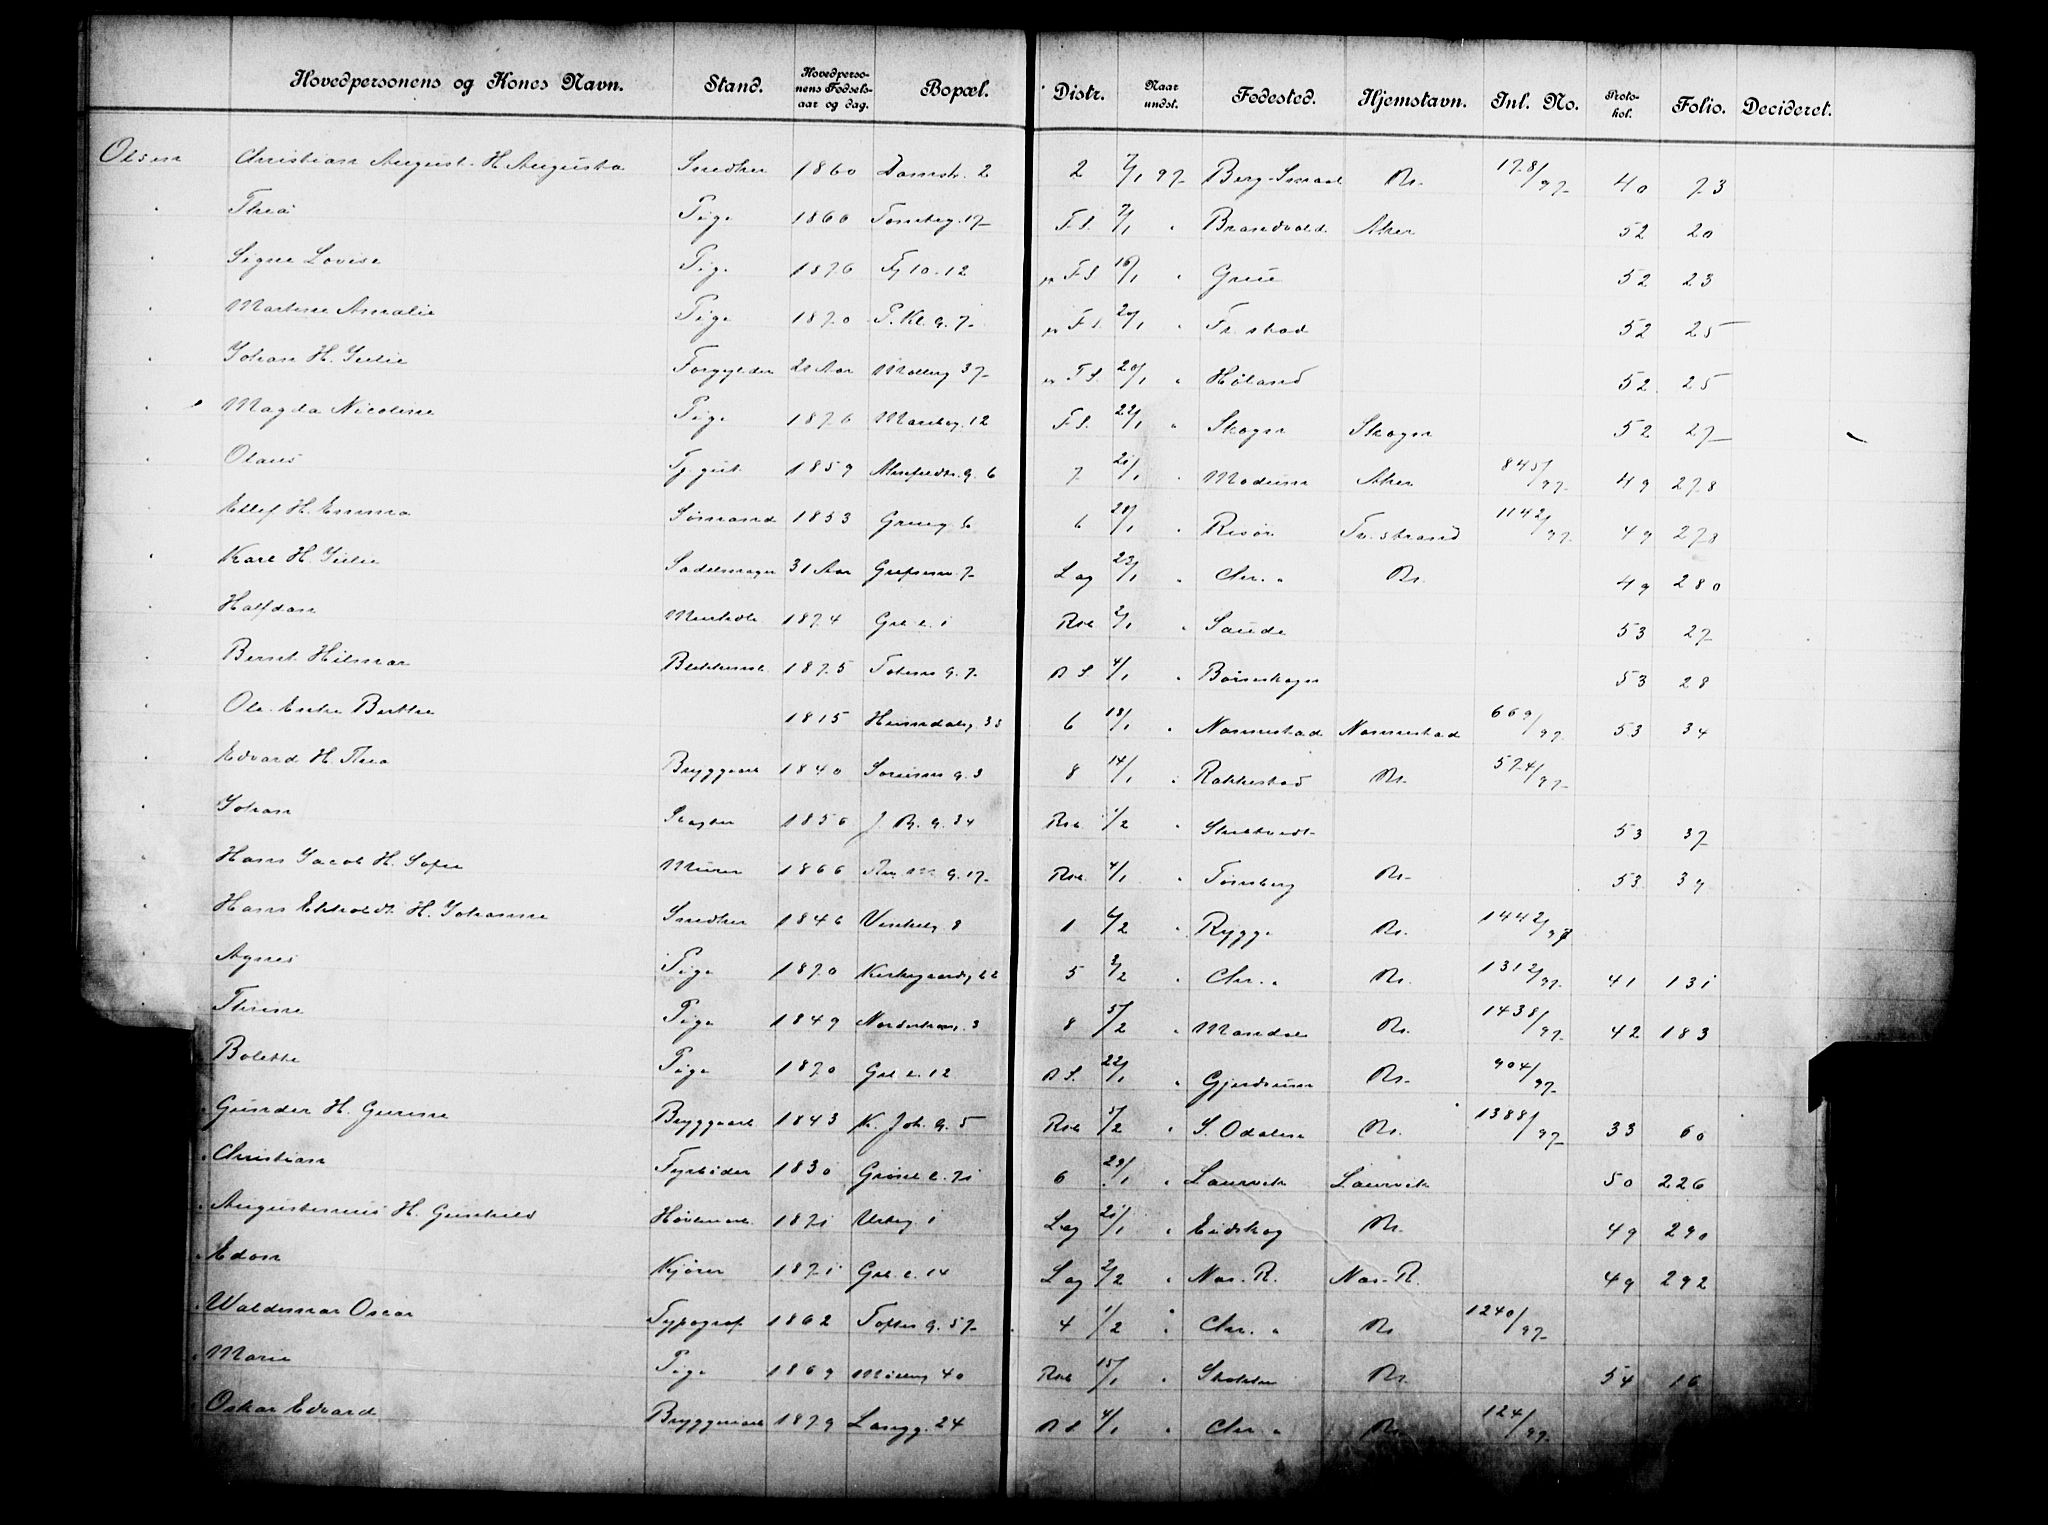 Hovedpersonens og Kones Navn. Stand. Hovedpersonens Fødselsaar og dag. Bopæl. Distr. Naar undst. Fødested. Hjemstavn. Jnl. No. Protokol. Folio. Decideret.
Olsen Christian August. H. Augusta Smedker 1860 Damstr. 2 2 7/1 97 Berg-Smaal Kr. 178/97 40 73
" Thea Pige 1860 Tønsbeg. 17 F.S. 7/1 " Brandvold Aker 52 20
" Signe Lovise Pige 1876 Tj 10-12 F.S. 16/1 " Grue 52 23
" Martine Amalie Pige 1870 P. Kl. g. 7 F.S. 20/1 " Fr. stad 52 25
" Johan H. Julie Forgylder Aar Møllerg 37 F.S. 20/1 " Høland 52 25
" Magda Nicoline Pige 1876 12 F.S. 22/1 " Skoger Skoger 52 27
" Olaus Tj. gut 1859 g. 6 7 21/1 " Modum Aker 845/97 49 278
" Ellef H. Emma Sømand 1853 Grueg. 6 6 28/1 " Risør Tv. strand 1142/97 49 278
" Karl H. Julie Sadelmager 31 Aar Grefsenv. 7 Lag 23/1 " Chr. " Kr. 49 280
" Halfdan 1874 Grl. l. 1 2/1 " Saude 53 27
" Bernt Hilmar 1875 Totens g. 7 4/1 " Børseskogn 53 28
" Ole. Enke Berthe 1815 Heimdalsg. 33 6 18/1 " Nannestad Nannestad 669/97 53 34
" Edvard H. Thea Bryggearb 1840 Sørens g. 3 8 14/1 " Rakkestad Kr. 574/97
" Johan Slagter 1856 J. B. g. 34 1/2 " 53 37
" Hans Jacob H. Sofie Murer 1866 g. 17 4/1 " Tønsberg Kr. 53 39
" Hans Ekholdt H. Johanne Smedker 1846 8 1 6/2 " Rygge Kr. 1442/97
" Agnes Pige 1870 Kirkegaardsg 22 5 3/2 " Chr. " Kr. 1312/97 41 131
" Thrine Pige 1849 3 8 5/2 " Mandal Kr. 1438/97 42 183
" Bolette Pige 1870 Grl. l. 12 22/1 " Gjerdrum Kr. 904/97
" Gunder H. Gurine Bryggearb 1843 K. Joh. g. 5 5/2 " S. Odalen Kr. 1388/97 33 60
" Christian Fyrbøder 1830 Grønl. l. 71 6 29/1 " Laurvik Laurvik 50 226
" Augustinius H. Gunhild Høvlearb. 1871 Urteg 1 Lag 21/1 " Eidskog Kr. 49 290
" Edon Kjører 1871 Grl. l. 14 Lag 2/2 " Nas. R. Nas. R. 49 292
" Waldemar Oscar Typograf 1862 Toftes g. 57 4 1/2 " Chr. " Kr 1240/97
" Marie Pige 1869 Møllerg 40 15/1 " Kr. 54 16
" Oskar Edvard Bryggerarb 1879 Langg. 24 4/1 " Chr. " Kr. 124/97